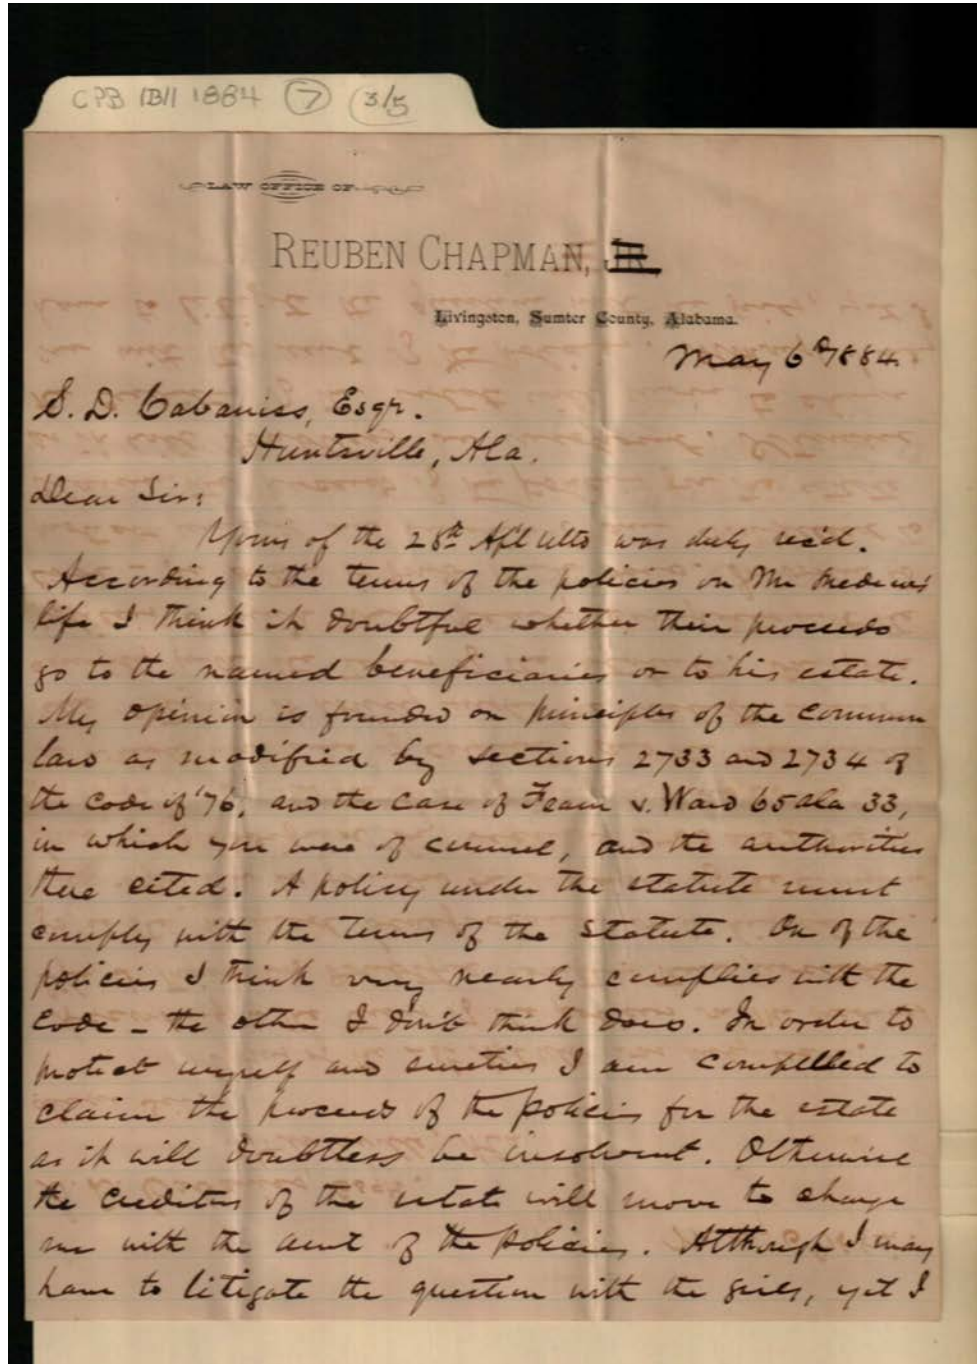 CPB 1B11 1884 7 3/5
LAW OFFICE OF
REUBEN CHAPMAN, JR.
Livingston, Sumter County, Alabama.
May 6th 1884.
S. D. Cabaniss, Esqr.
Huntsville, Ala.
Dear Sir:
Yours of the 28th Apl ulto was duly rec'd.
According to the terms of the policies on Mr
life I think it doubtful whether their proceeds
go to the named beneficiaries or to his estate.
My opinion is founded on principles of the common
law as modified by sections 2733 and 2734 of
the Code of '76, and the case of v. Ward 65 Ala 33,
in which you were of counsel, and the authorities
there cited. A policy under the statute must
comply with the terms of the statute. On of the
policies I think very nearly complies with the
Code - the other I don't think does. In order to
protect myself and sureties I am compelled to
claim the proceeds of the policies for the estate
as it will doubtless be insolvent. Otherwise
the creditors of the estate will move to charge
me with the amt of the policies. Although I may
have to litigate the question with the girls, yet I